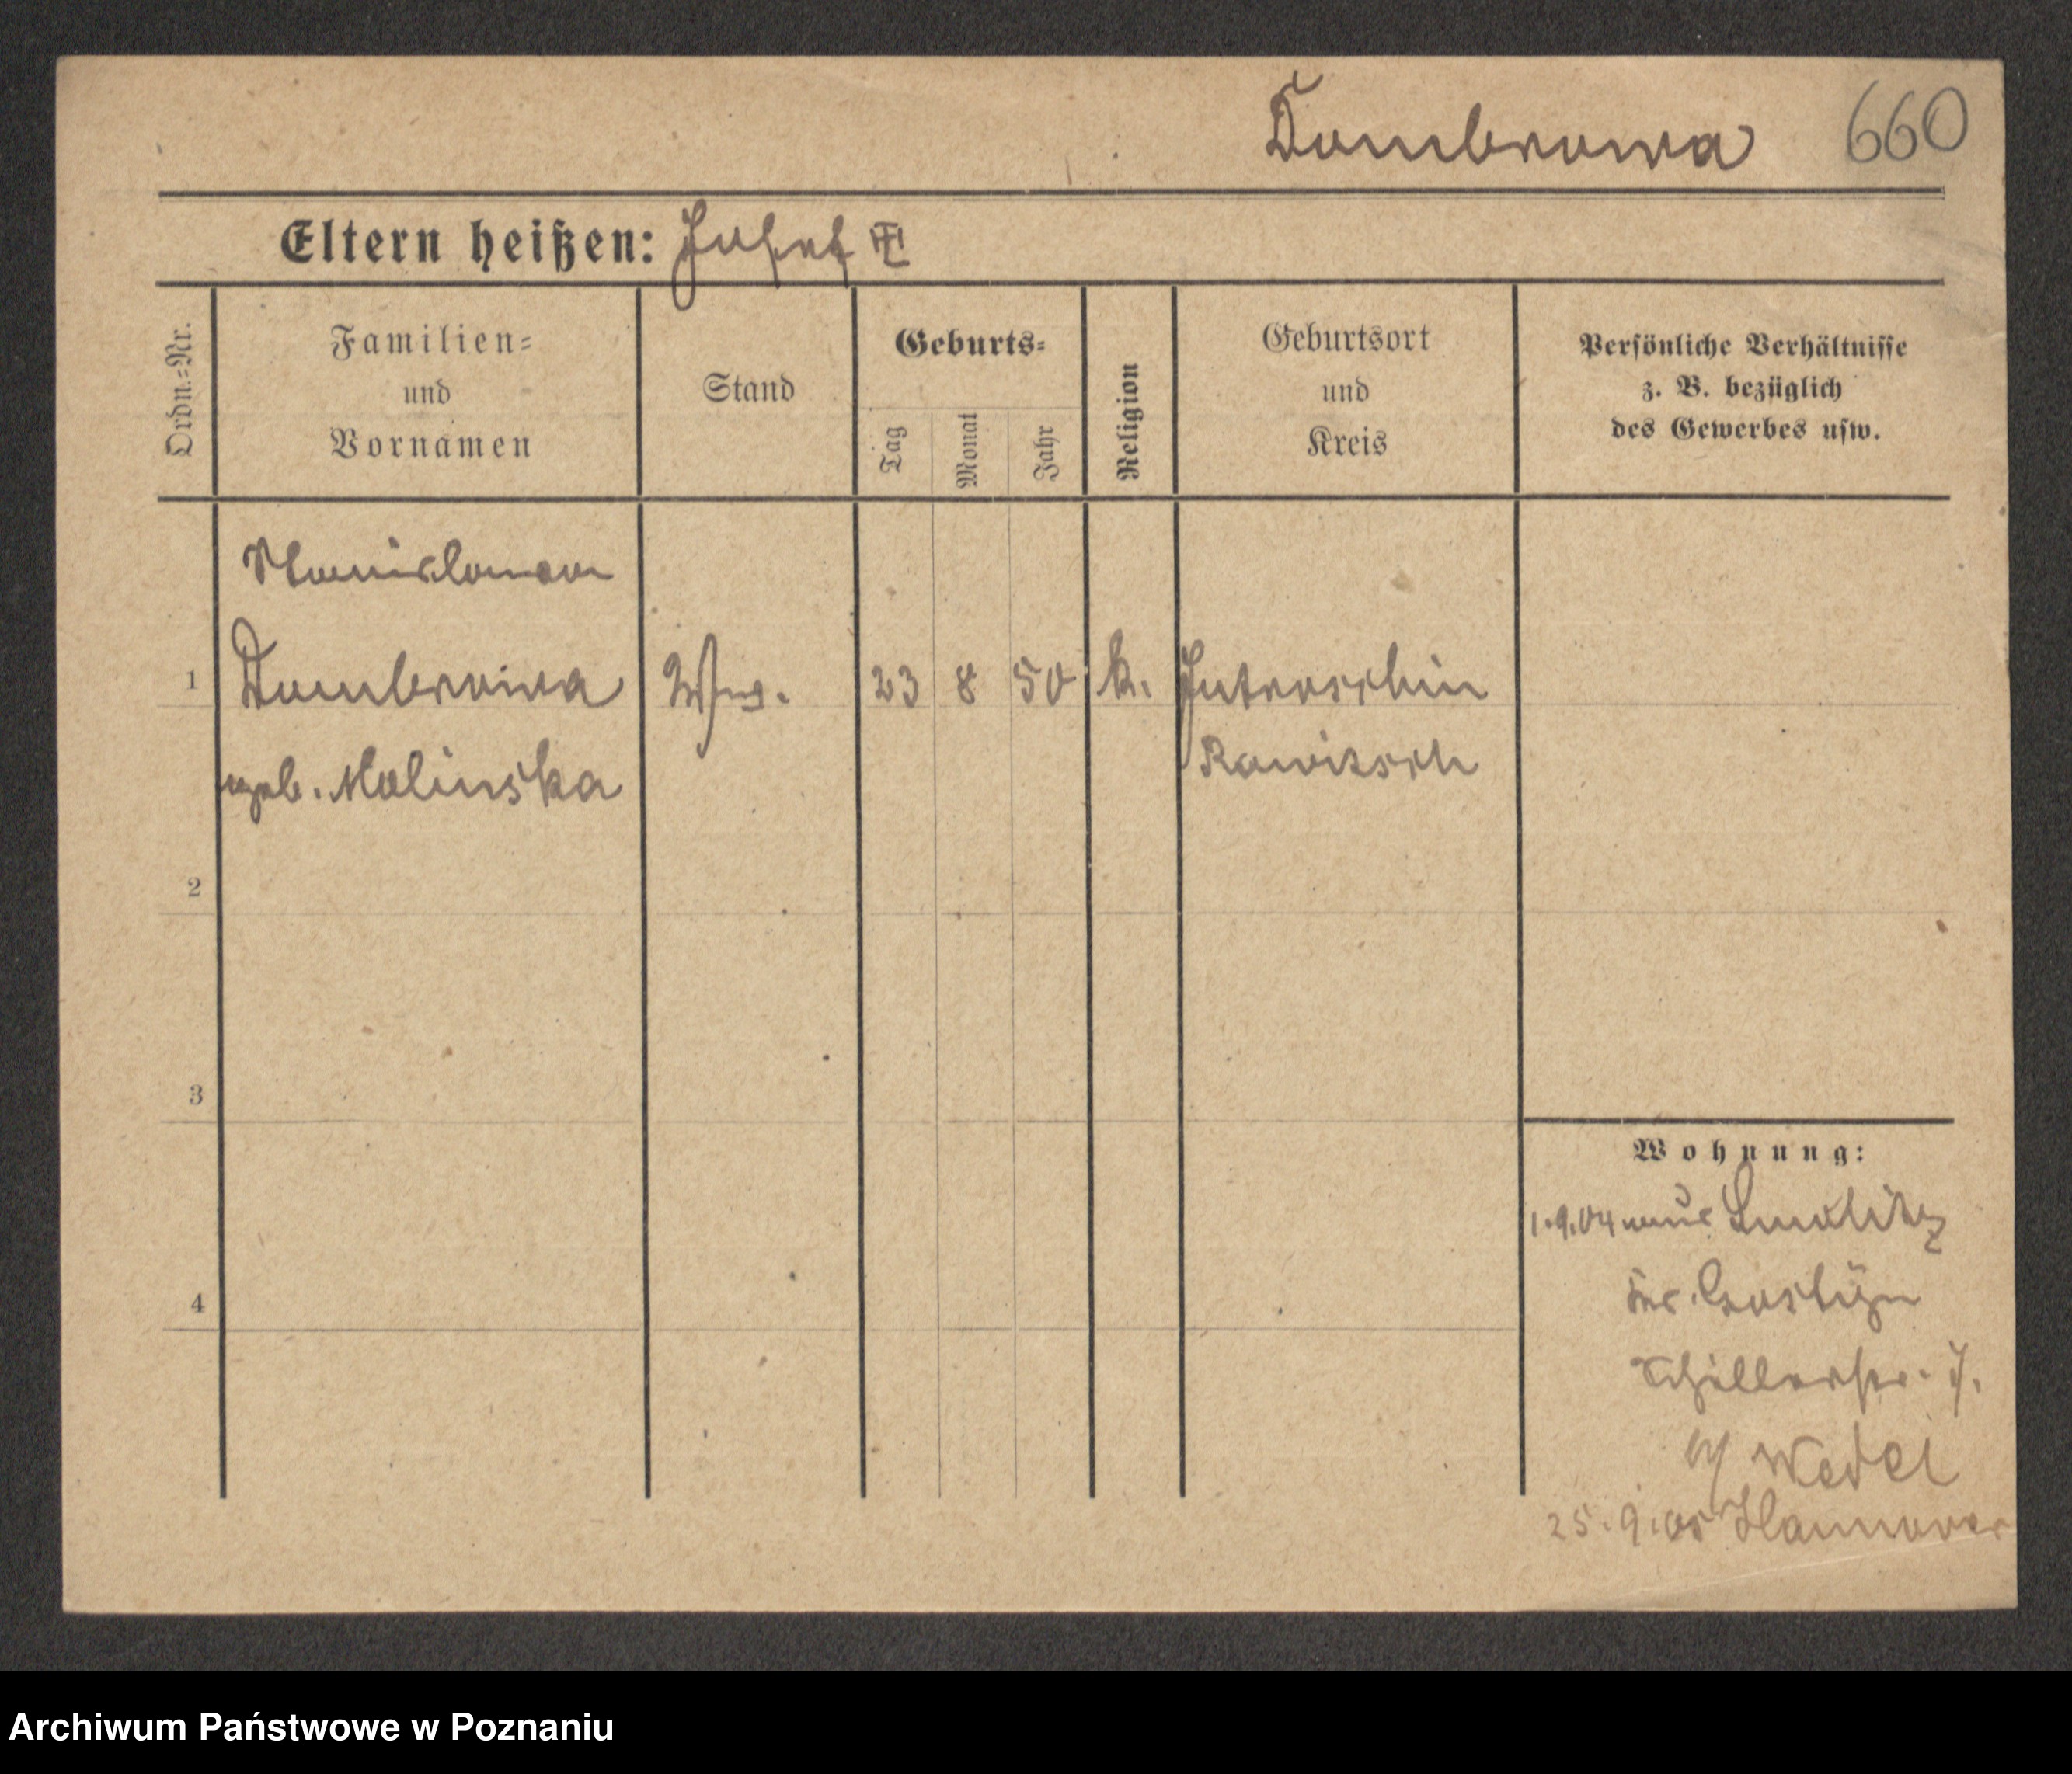 Dombrowa 660
Eltern heißen: Josef
Ordn.-Nr.
Familien-
und
Vornamen
Stand
Geburts-
Tag
Monat
Jahr
Religion
Geburtsort
und
Kreis
Persönliche Verhältnisse
z. B. bezüglich
des Gewerbes usw.
Stanislawa
1 Dombrowa Ww. 23 8 50 k. Jutroschin
geb. Malinska Rawitsch
2
3
4
Wohnung:
1.9.04 aus Smolitz
Kr. Gostyn
Schillerstr. 7.
Wedel
25.9.05 Hannover
Archiwum Państwowe w Poznaniu